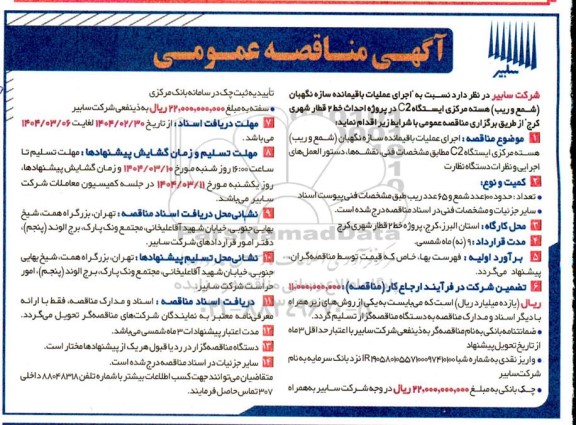 آگهی مناقصه عمومی
سابیر
شرکت سابیر در نظر دارد نسبت به "اجرای عملیات باقیمانده سازه نگهبان
(شمع و ریب) هسته مرکزی ایستگاه C2 در پروژه احداث خط ۲ قطار شهری
کرج" از طریق برگزاری مناقصه عمومی با شرایط زیر اقدام نماید:
۱ موضوع مناقصه : اجرای عملیات باقیمانده سازه نگهبان (شمع و ریب)
هسته مرکزی ایستگاه C2 مطابق مشخصات فنی، نقشه‌ها، دستورالعمل‌های
اجرایی و نظرات دستگاه نظارت
۲ کمیت و نوع:
• تعداد : حدود ۱۰۰ عدد شمع و ۶۵ عدد ریب طبق مشخصات فنی پیوست اسناد
• سایر جزئیات و مشخصات فنی در اسناد مناقصه درج شده است.
۳ محل کارگاه : استان البرز، کرج، پروژه خط ۲ قطار شهری کرج
۴ مدت قرارداد : ۹ (نه) ماه شمسی.
۵ برآورد اولیه : پروژه فاقد برآورد اولیه بوده و قیمت توسط مناقصه‌گران،
پیشنهاد می‌گردد.
۶ تضمین شرکت در فرآیند ارجاع کار (مناقصه) : ۱۱,۰۰۰,۰۰۰,۰۰۰
ریال (یازده میلیارد ریال) است که می‌بایست به یکی از روش‌های زیر همراه
با دیگر اسناد و مدارک به دستگاه مناقصه‌گزار تسلیم گردد.
• ضمانتنامه بانکی به نام مناقصه‌گر به ذینفعی شرکت سابیر با اعتبار حداقل ۳ ماه
از تاریخ تحویل پیشنهاد
• واریز نقدی به شماره شبا نزد بانک سرمایه به نام
شرکت سابیر
• چک بانکی به مبلغ ۲۲,۰۰۰,۰۰۰,۰۰۰ ریال در وجه شرکت سابیر به همراه
تأییدیه ثبت چک در سامانه بانک مرکزی
• سفته به مبلغ ۲۲,۰۰۰,۰۰۰,۰۰۰ ریال به ذینفعی شرکت سابیر
۷ مهلت دریافت اسناد : از تاریخ ۱۴۰۴/۰۲/۳۰ لغایت ۱۴۰۴/۰۳/۰۶
می‌باشد.
۸ مهلت تسلیم و زمان گشایش پیشنهادها : مهلت تسلیم تا
ساعت ۱۶:۰۰ روز شنبه مورخ ۱۴۰۴/۰۳/۱۰ و زمان گشایش پیشنهادها،
روز یکشنبه مورخ ۱۴۰۴/۰۳/۱۱ در جلسه کمیسیون معاملات شرکت
سابیر می‌باشد.
۹ نشانی محل دریافت اسناد مناقصه : تهران، بزرگراه همت، شیخ
بهایی جنوبی، خیابان شهید آقاعلیخانی، مجتمع ونک پارک، برج الوند (پنجم)،
دفتر امور قراردادهای شرکت سابیر.
۱۰ نشانی محل تسلیم پیشنهادها : تهران، بزرگراه همت، شیخ بهایی
جنوبی، خیابان شهید آقاعلیخانی، مجتمع ونک پارک، برج الوند (پنجم)، امور
حراست شرکت سابیر.
۱۱ دریافت اسناد مناقصه : اسناد و مدارک مناقصه، فقط با ارائه
معرفی‌نامه معتبر به نمایندگان شرکت‌های مناقصه‌گر تحویل می‌گردد.
۱۲ مدت اعتبار پیشنهادات ۳ ماه شمسی می‌باشد.
۱۳ دستگاه مناقصه‌گزار در رد یا قبول هر یک از پیشنهادها مختار است.
۱۴ سایر جزئیات در اسناد مناقصه درج شده است.
متقاضیان می‌توانند جهت کسب اطلاعات بیشتر با شماره تلفن ۸۸۰۴۸۳۱۸ داخلی
۳۰۷ تماس حاصل فرمایند.